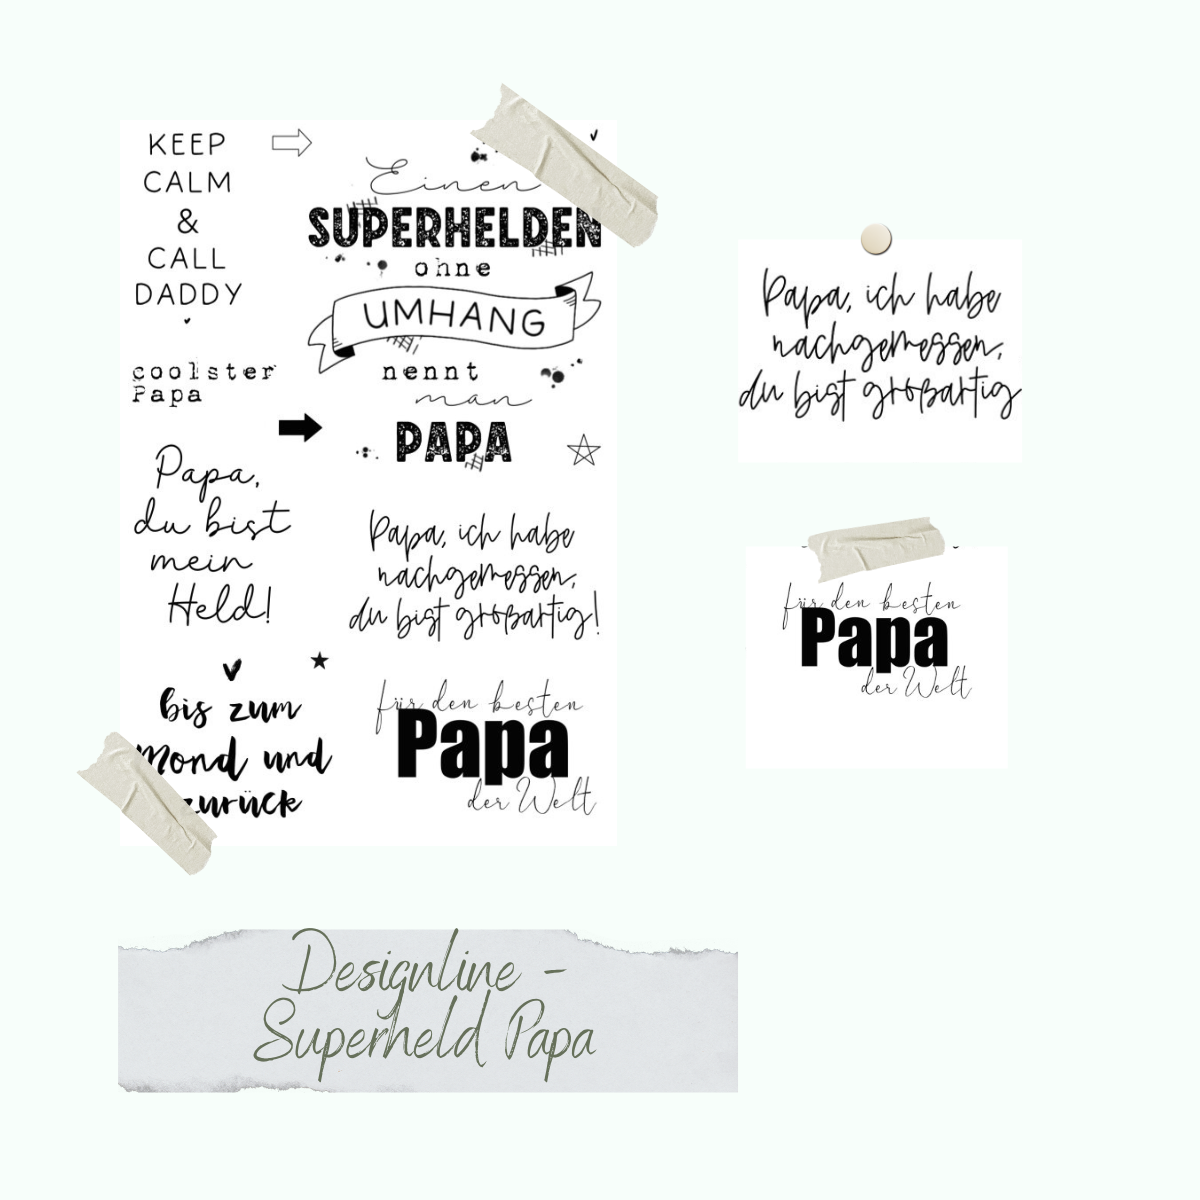 KEEP
CALM
&
CALL
DADDY
coolster
Papa
Papa,
du bist
mein
Held!
bis zum
Mond und
zurück
Einen
SUPERHELDEN
ohne
UMHANG
nennt
man
PAPA
Papa, ich habe
nachgemessen,
du bist großartig!
für den besten
Papa
der Welt
Papa, ich habe
nachgemessen,
du bist großartig
für den besten
Papa
der Welt
Designline -
Superheld Papa